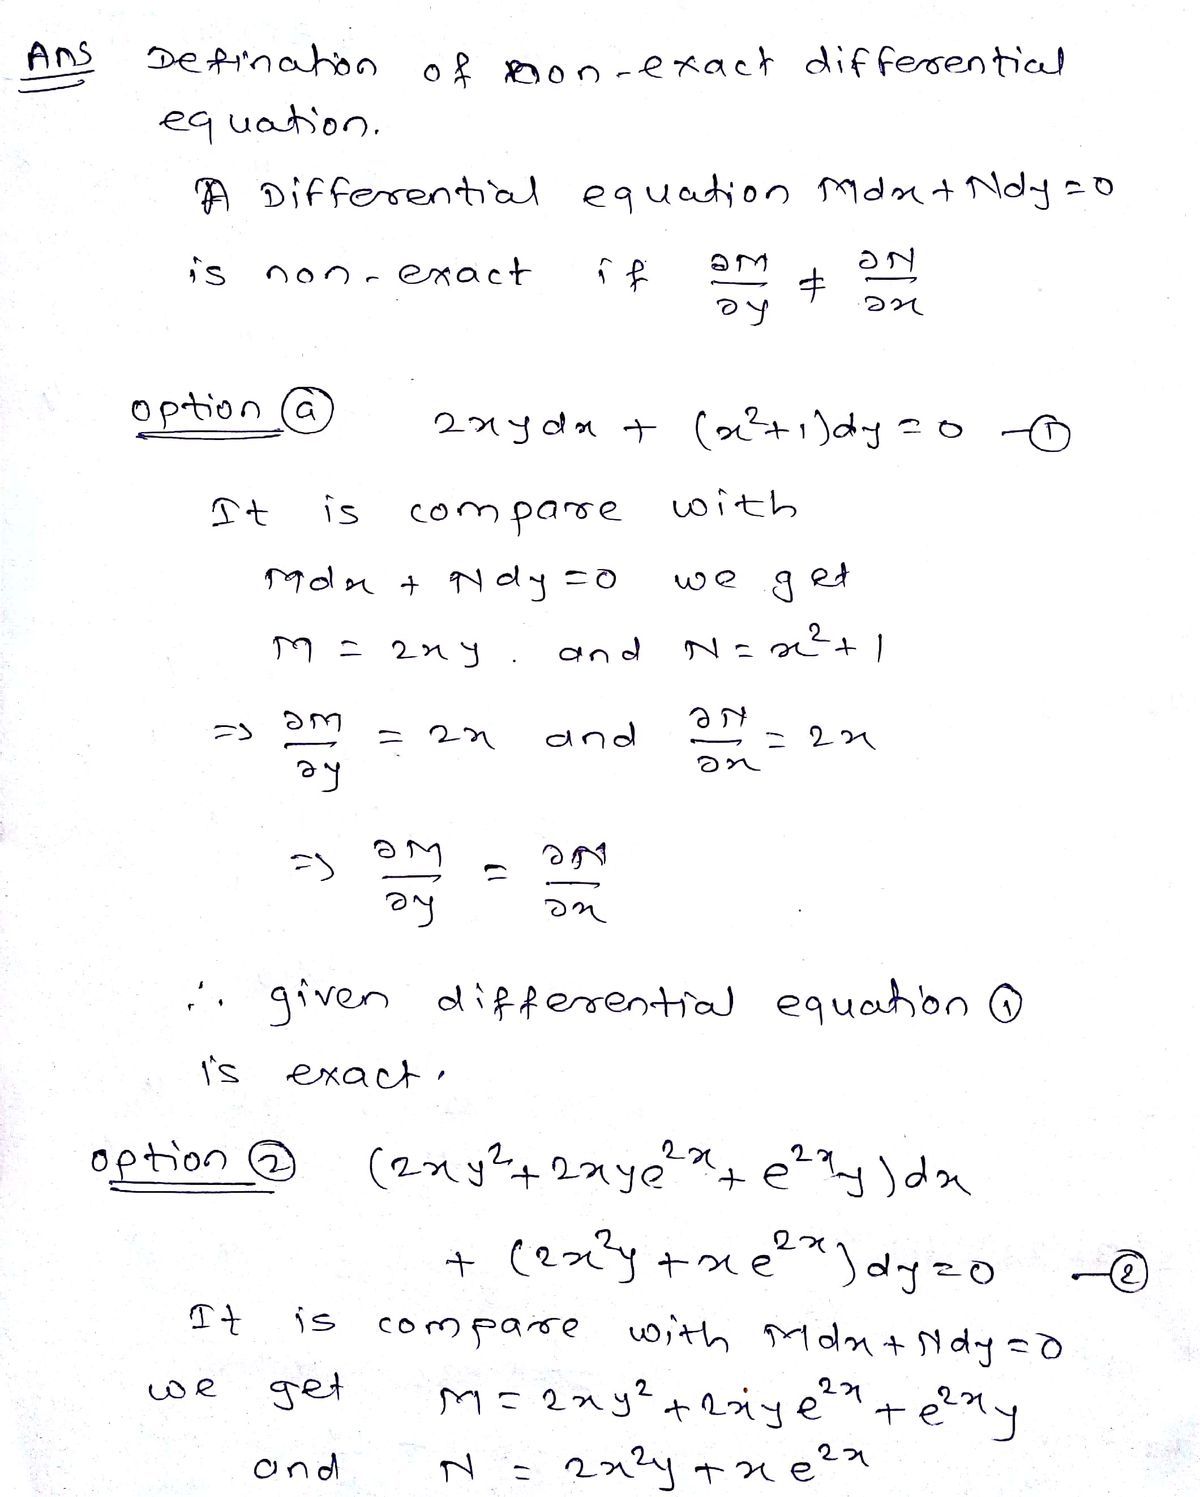 Ans Defination of non-exact differential
equation.
A Differential equation Mdx + Ndy = 0
is non-exact if ∂M/∂y ≠ ∂N/∂x
option ⓐ 2xydx + (x²+1)dy = 0 —①
It is compare with
Mdx + Ndy = 0 we get
M = 2xy. and N = x²+1
=> ∂M/∂y = 2x and ∂N/∂x = 2x
=> ∂M/∂y = ∂N/∂x
∴ given differential equation ①
is exact.
option ② (2xy²+2xye²ˣ+e²ˣy)dx
+ (2x²y+xe²ˣ)dy=0 —②
It is compare with Mdx + Ndy = 0
we get M = 2xy²+2xye²ˣ+e²ˣy
and N = 2x²y+xe²ˣ